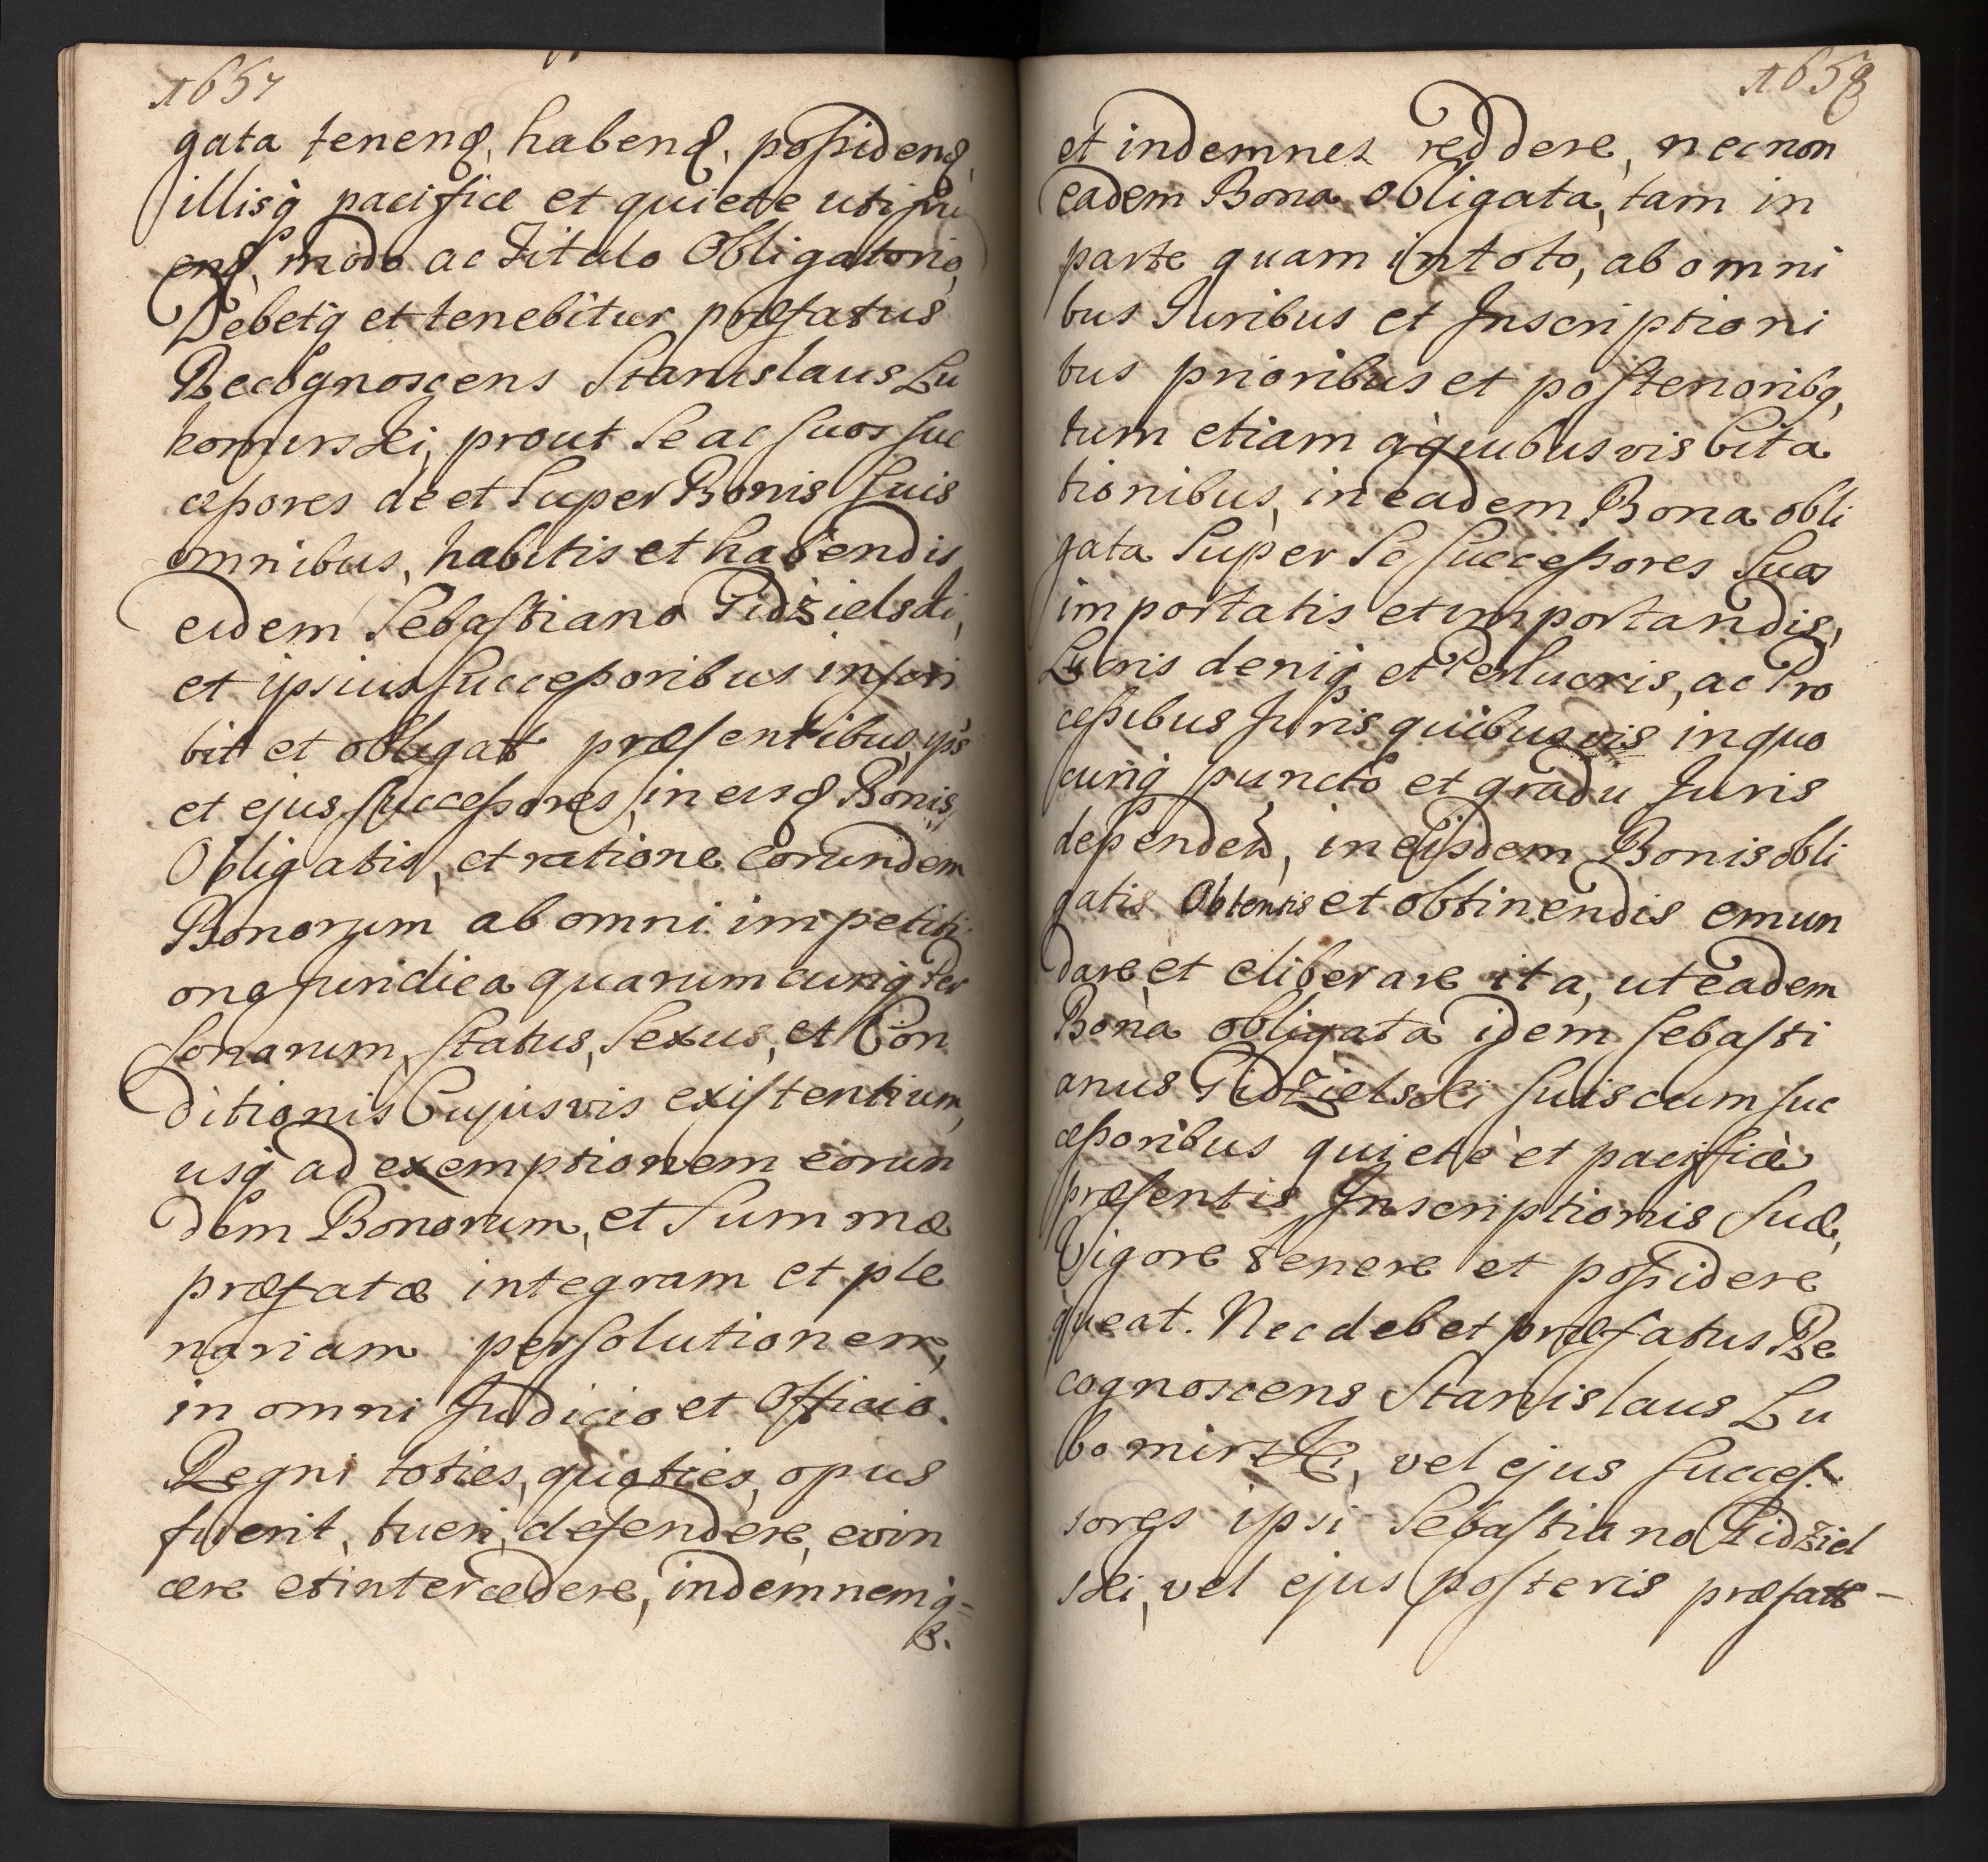 1657
gata tenend, habend, possidend,
illisq pacifice et quiete uti fru
end, modo ac Titulo Obligatorio,
Debetq et tenebitur præfatus
Recognoscens Stanislaus Lu
bomirski, prout Se ac suos suc
cessores de et Super Bonis suis
omnibus, habitis et habendis
eidem Sebastiano Pidżielski,
et ipsius successoribus inscri
bit et obligat præsentibus, ips
et ejus successores, in eisd Bonis,
Obligatis, et ratione eorundem
Bonorum ab omni impetiti
one juridica quarumcunq Per
sonarum, status, sexus, et Con
ditionis Cujusvis existentium,
usq ad exemptionem eorun
dem Bonorum, et Summæ
præfatæ integram et ple
nariam persolutionem,
in omni Judicio et Officio.
Regni toties, quoties, opus
fuerit, tueri, defendere, evin
cere et intercedere, indemnemq

1658
et indemnes reddere, nec non
eadem Bona Obligata, tam in
parte quam in toto, ab omni
bus Juribus et Inscriptioni
bus prioribus et posterioribq,
tum etiam à quibusvis Cita
tionibus, in eadem Bona obli
gata Super Se successores Suos
importatis et importandis,
Lucris deniq et Perlucris, ac Pro
cessibus Juris quibusvis in quo
cunq puncto et gradu Juris
depended, in ejisdem Bonis obli
gatis Obtentis et obtinendis emun
dare, et eliberare ita, ut eadem
Bona obligata idem Sebasti
anus Pidżielski suis cum suc
cessoribus quietè et pacificè
præsentis Inscriptionis Suæ,
Vigore tenere et possidere
queat. Nec debet præfatus Re
cognoscens Stanislaus Lu
bomirski, vel ejus succes
sores ipsi Sebastiano Pidżiel
ski, vel ejus posteris præfatt